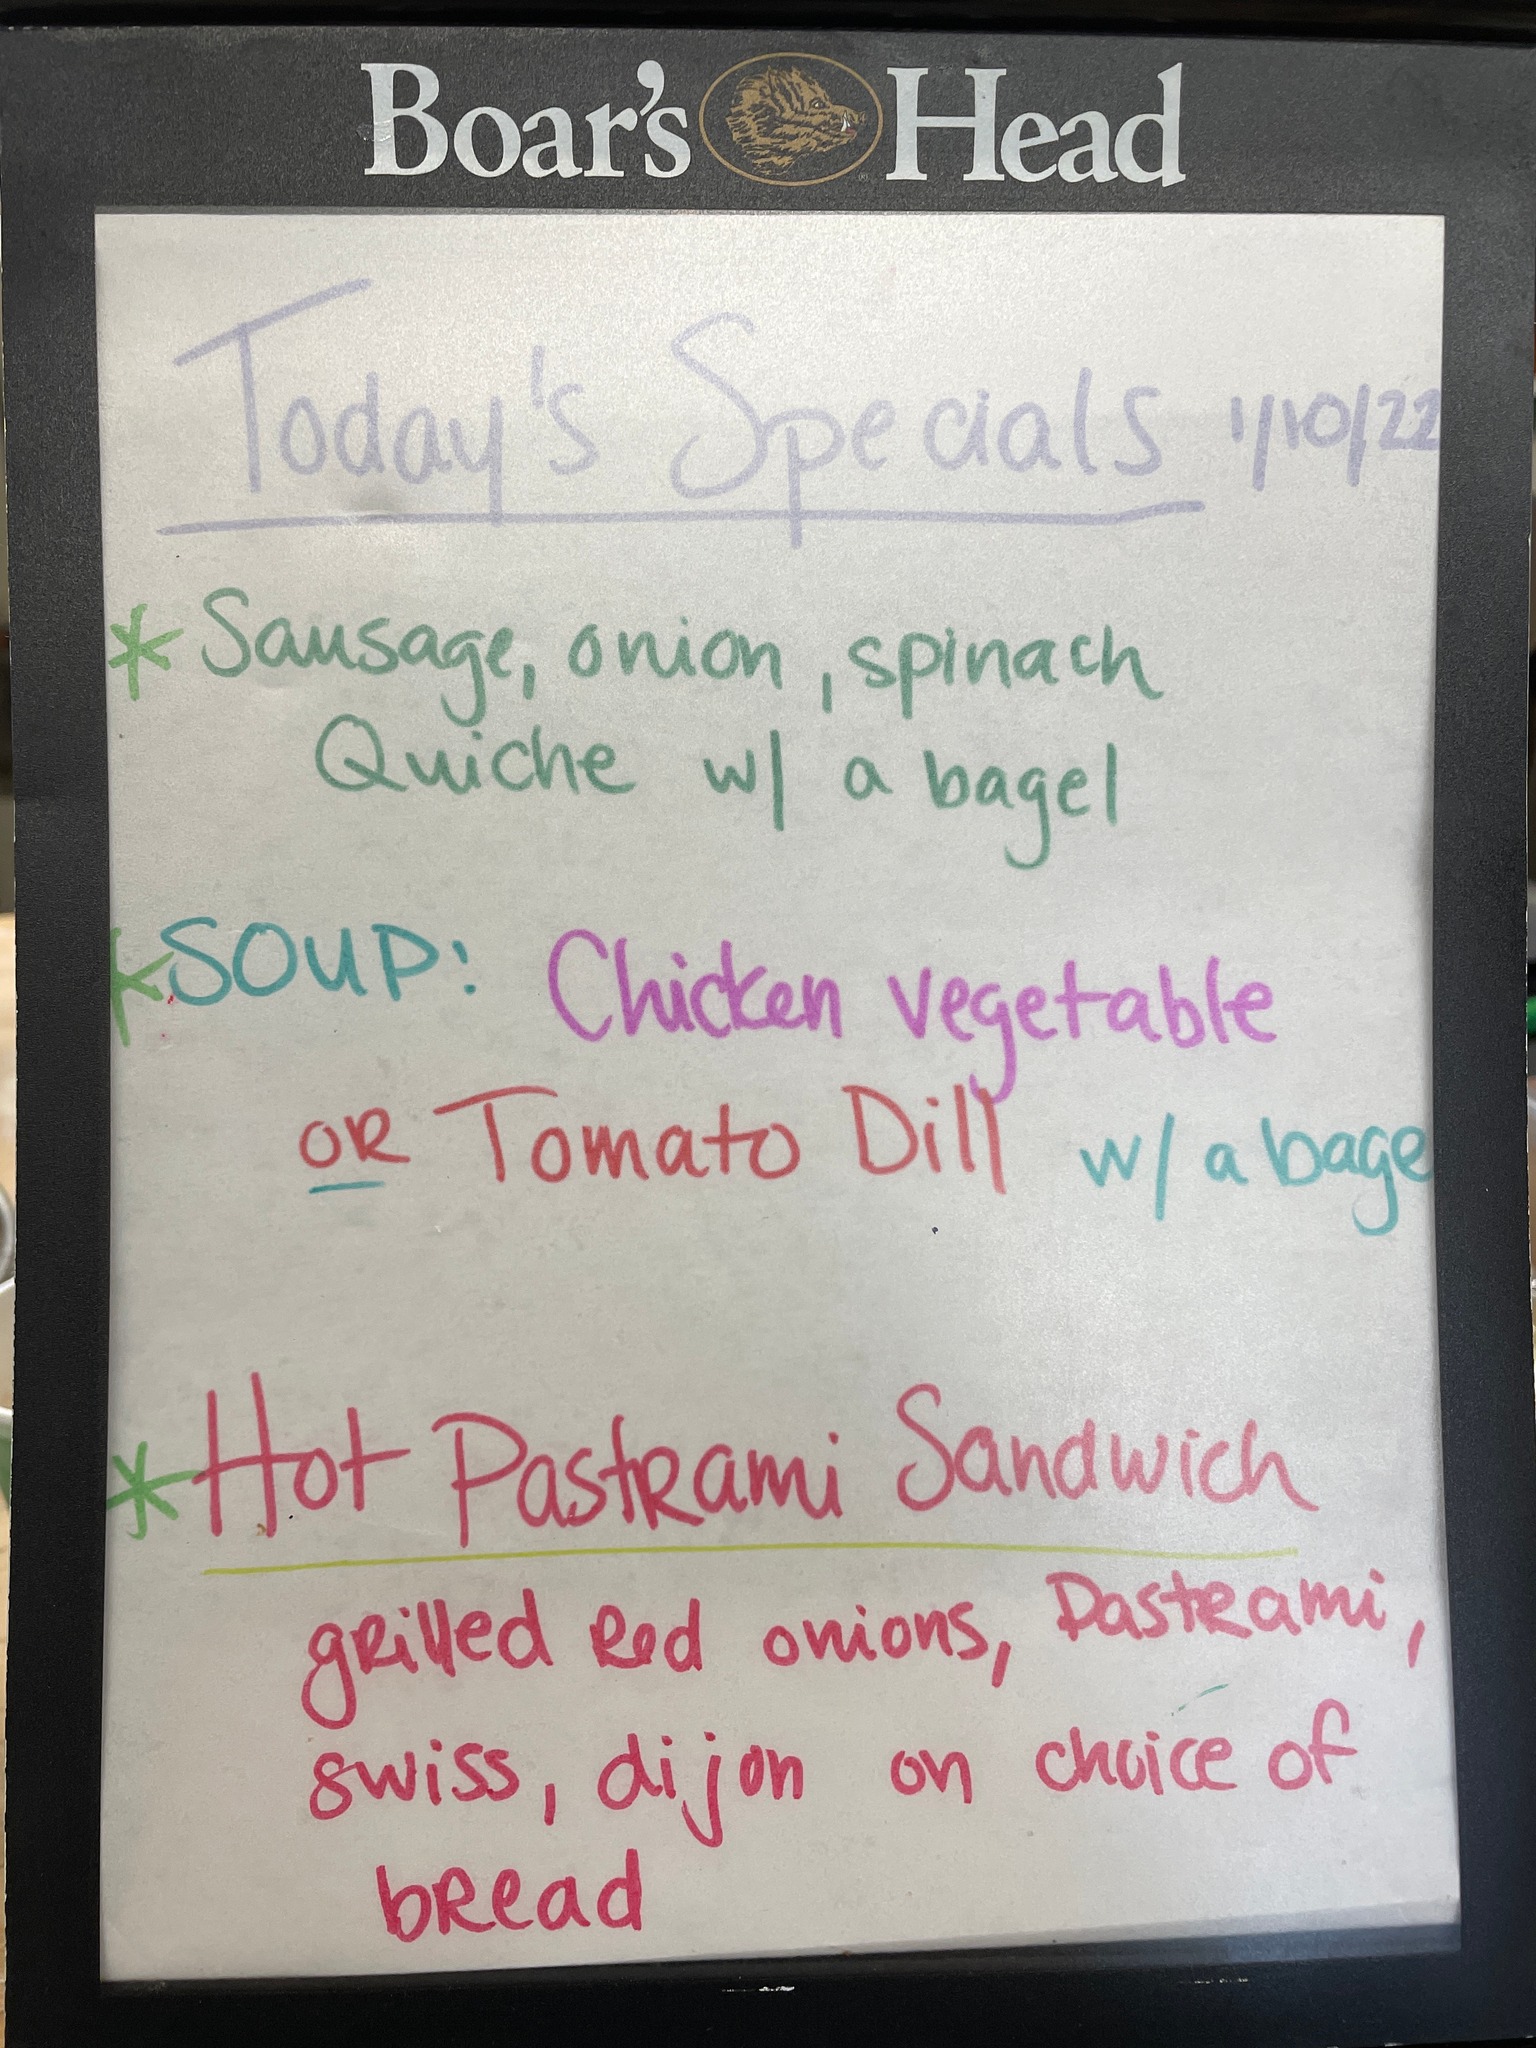 Boar's Head
Today's Specials 1/10/22
* Sausage, onion, spinach
Quiche w/ a bagel
* SOUP: Chicken vegetable
OR Tomato Dill w/ a bage
* Hot Pastrami Sandwich
grilled Red onions, Pastrami,
swiss, dijon on choice of
bread